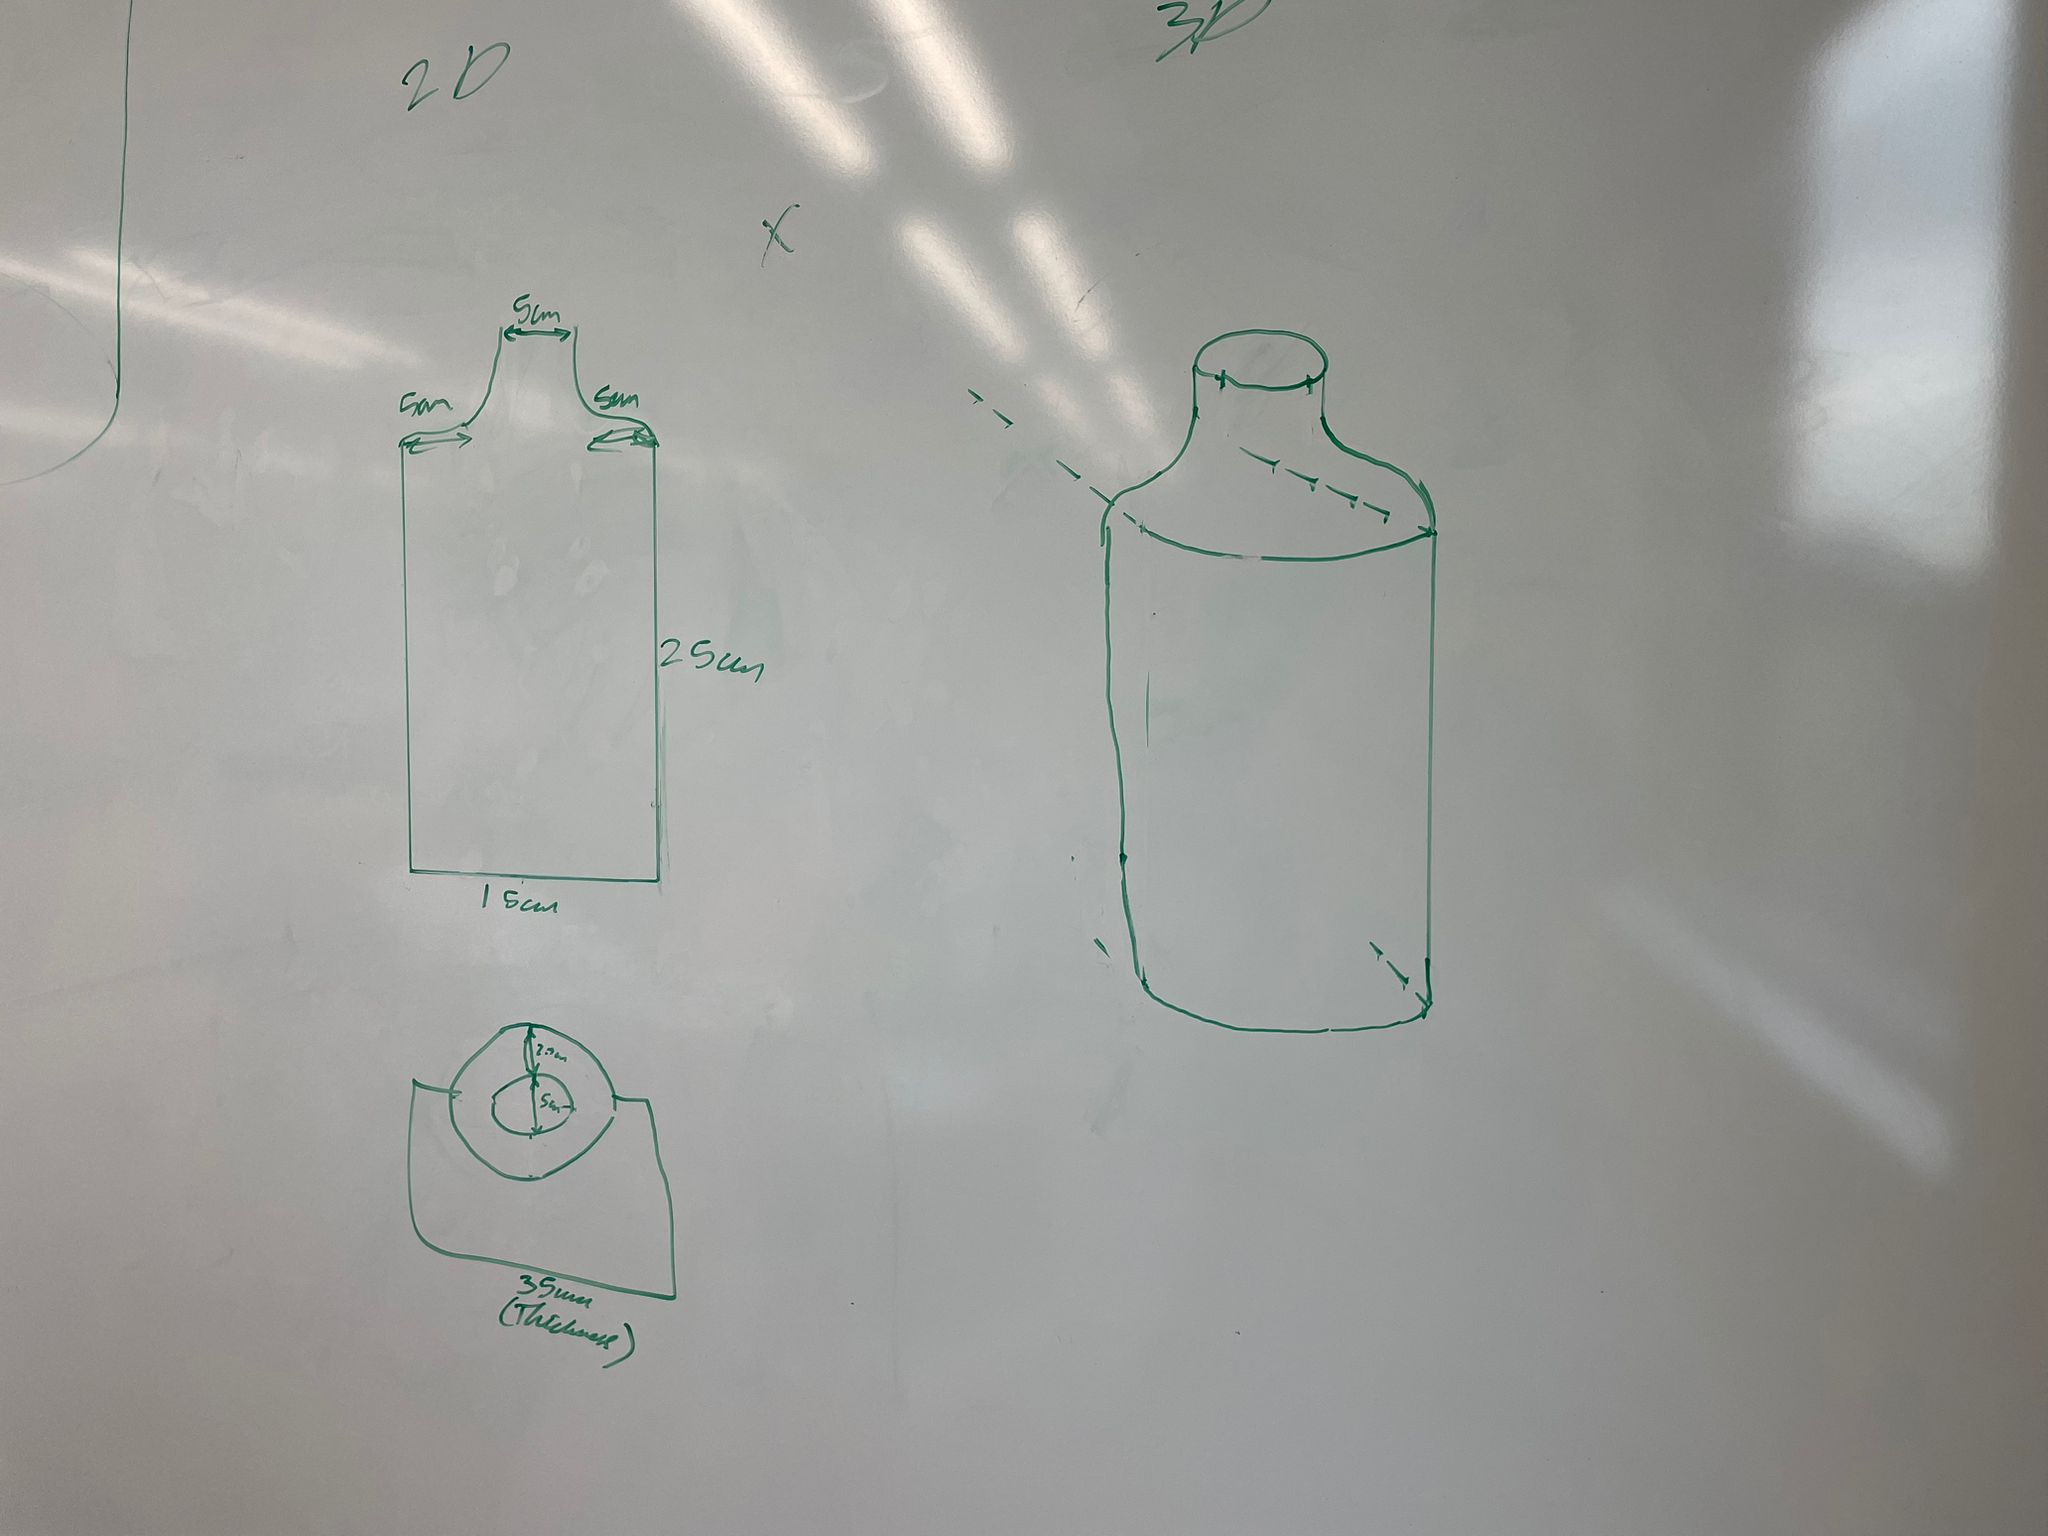 2D
3D
X
5cm
5cm
5cm
25cm
15cm
5cm
35mm
(Thickness)